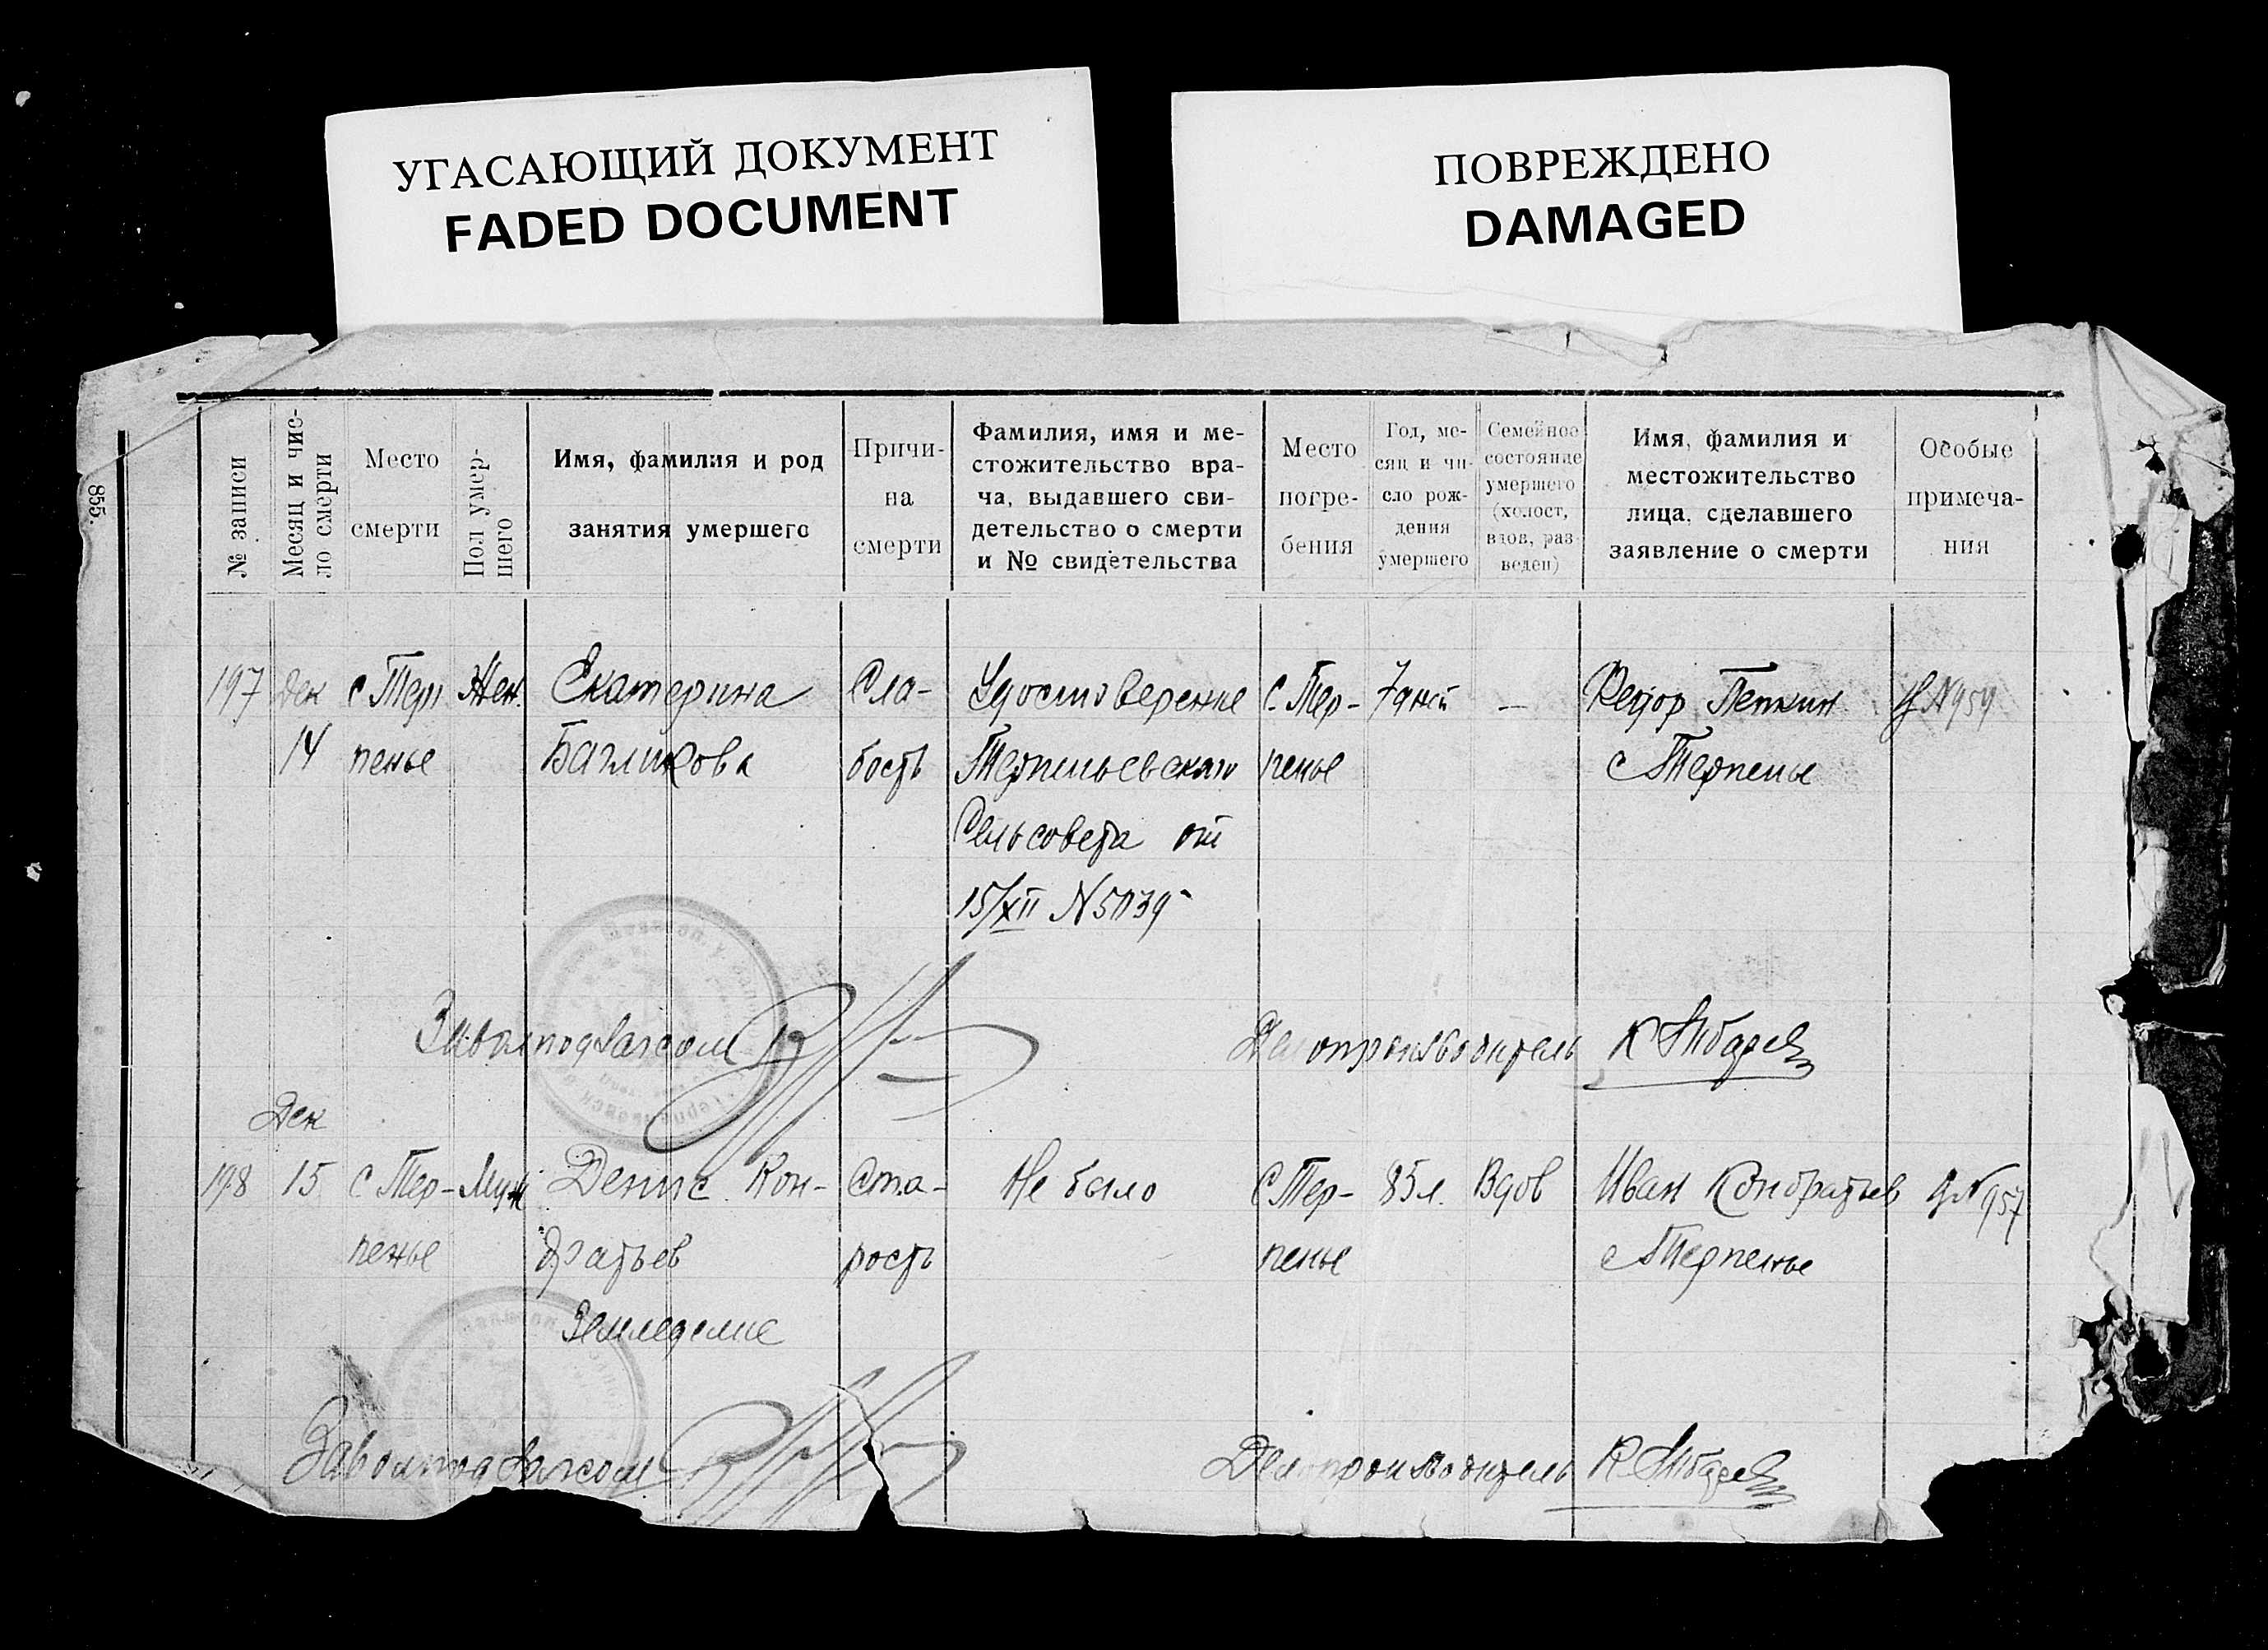 УГАСАЮЩИЙ ДОКУМЕНТ
FADED DOCUMENT
ПОВРЕЖДЕНО
DAMAGED
855.
№ записи
Месяц и чис-
ло смерти
Место
смерти
Пол умер-
шего
Имя, фамилия и род
занятия умершего
Причи-
на
смерти
Фамилия, имя и ме-
стожительство вра-
ча, выдавшего сви-
детельство о смерти
и № свидетельства
Место
погре-
бения
Год, ме-
сяц и чи-
сло рож-
дения
умершего
Семейное
состояние
умершего
(холост,
вдов, раз-
веден)
Имя, фамилия и
местожительство
лица, сделавшего
заявление о смерти
Особые
примеча-
ния
197
Дек
14
с Терп
пенье
Жен.
Екатерина
Сла-
бость
Удостоверение
Терпеньевскаго
Сельсовета от
15/XII N5039
С. Тер-
пенье
—
Федор
с Терпенье
N959
Делопроизводитель
Дек
198
15
с Тер-
пенье
Муж
Денис Кон-
дратьев
Земледелие
Ста-
рость
Не было
С Тер-
пенье
85 л.
Вдов
Иван Кондратьев
с Терпенье
N957
Делопроизводитель